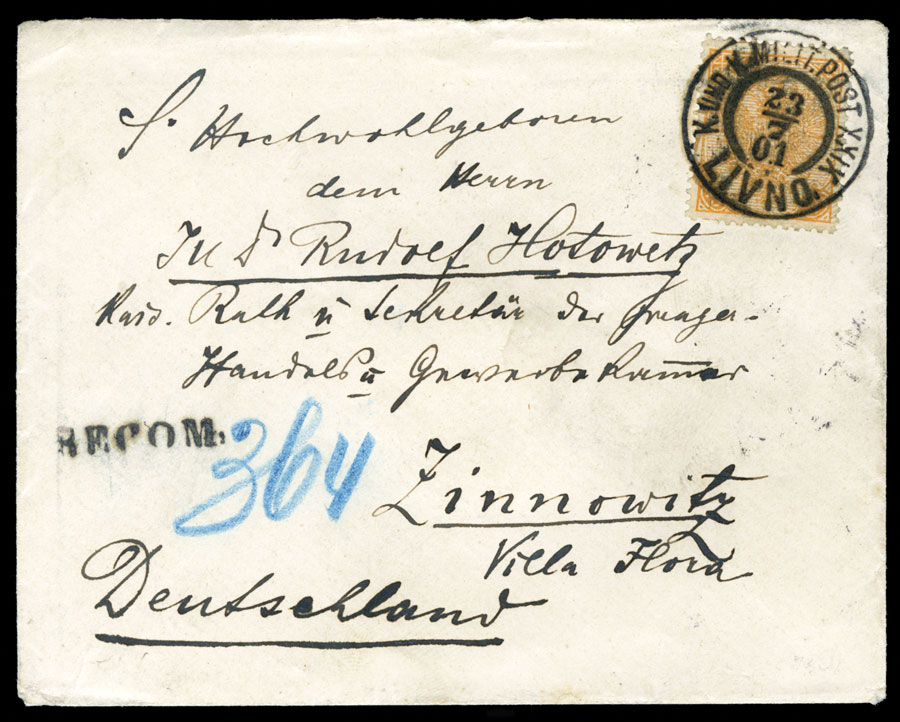 K. UND K. MILIT. POST XXIX
23
01
LIVNO.
S. Hochwohlgeboren
dem Herrn
Dr Rudolf Hotowetz
Kais. Rath u Sekretär der Prager-
Handels u Gewerbekammer
RECOM.
364
Zinnowitz
Villa Flora
Deutschland